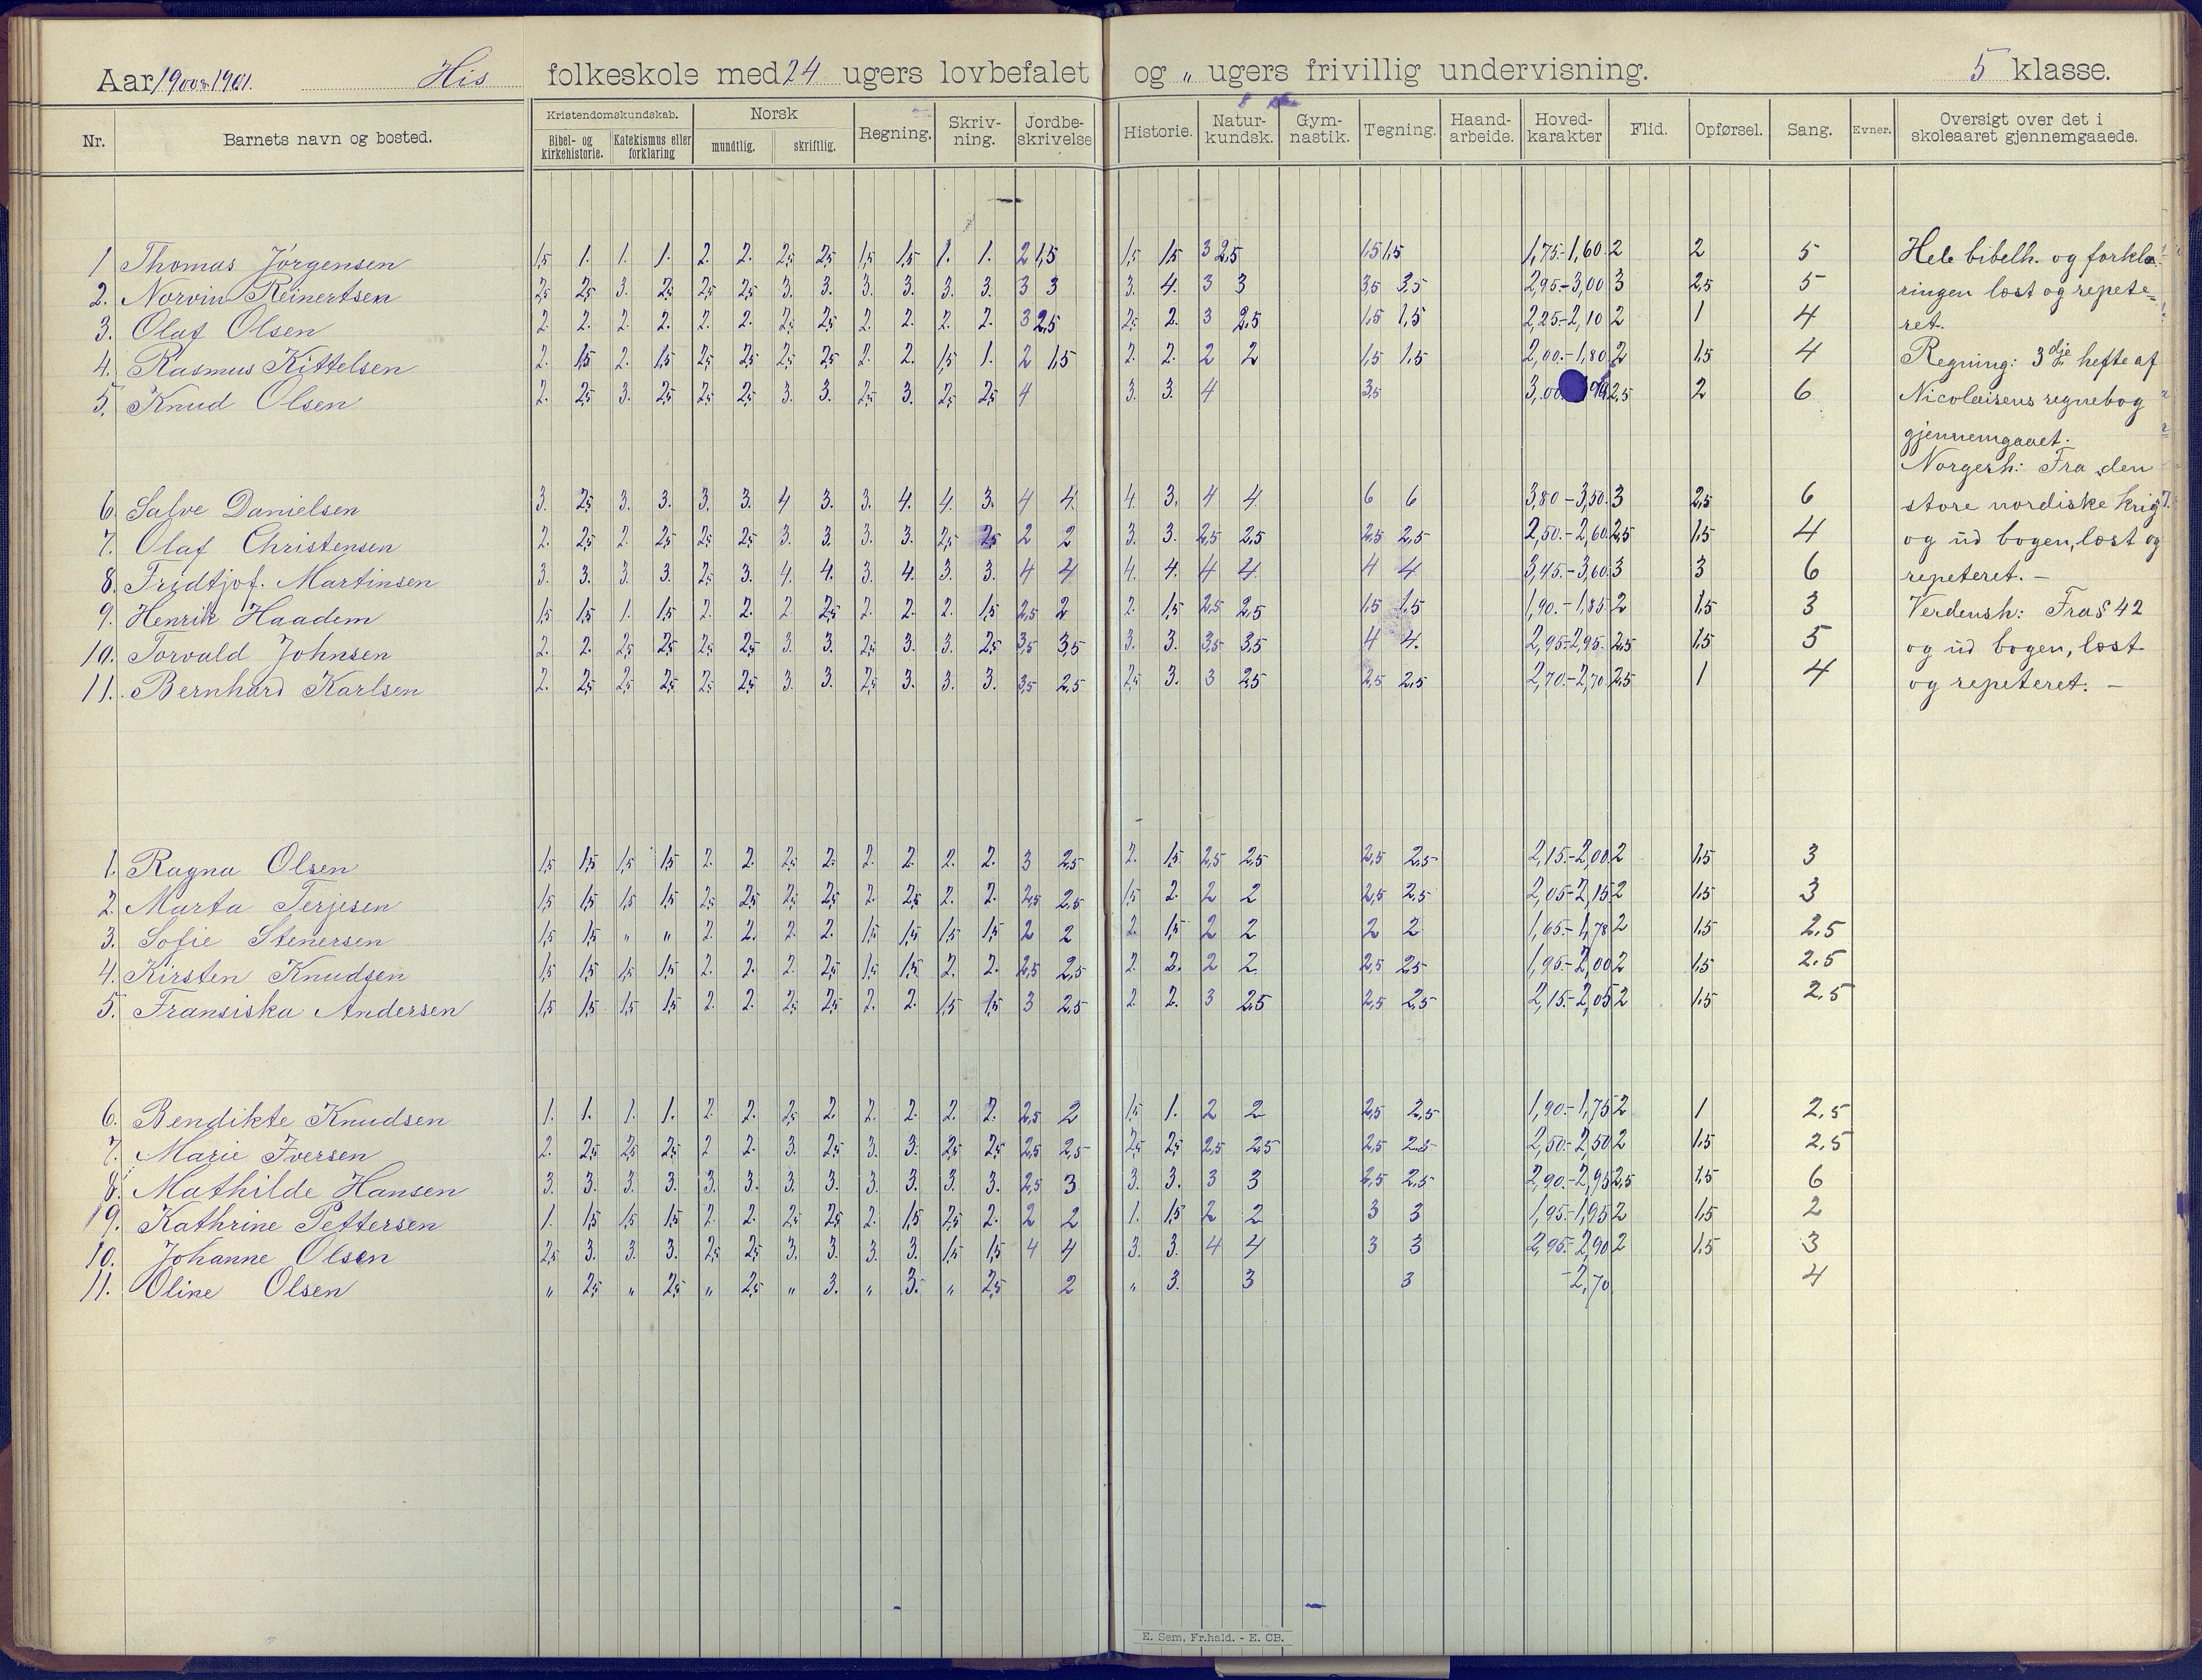 Aar 1900-1901. His folkeskole med 24 ugers lovbefalet og „ ugers frivillig undervisning. 5 klasse.
Nr. Barnets navn og bosted. Kristendomskundskab. Bibel- og kirkehistorie. Katekismus eller forklaring Norsk mundtlig. skriftlig. Regning. Skriv-ning. Jordbe-skrivelse Historie. Natur-kundsk. Gym-nastik. Tegning. Haand-arbeide. Hoved-karakter Flid. Opførsel. Sang. Evner. Oversigt over det i skoleaaret gjennemgaaede.
1 Thomas Jørgensen 1,5 1. 1. 1. 2. 2. 2,5 2,5 1,5 1,5 1. 1. 2 1,5 1,5 1,5 3 2,5 1,5 1,5 1,75-1,60 2 2 5 Hele bibelh. og forkla-
2. Norvin Reinertsen 2,5 2,5 3. 2,5 2,5 2,5 3. 3. 3. 3. 3. 3. 3 3 3. 4. 3 3 3,5 3,5 2,95-3,00 3 2,5 5 ringen læst og repete-
3. Olaf Olsen 2. 2. 2. 2. 2. 2. 2,5 2,5 2. 2. 2. 2. 3 2,5 2,5 2. 3 2,5 1,5 1,5 2,25-2,10 2 1 4 ret.
4. Rasmus Kittelsen 2. 1,5 2. 1,5 2,5 2,5 2,5 2,5 2. 2. 1,5 1. 2 1,5 2. 2. 2 2 1,5 1,5 2,00-1,80 2 1,5 4 Regning: 3dje hefte af
5. Knud Olsen 2. 2,5 3. 2,5 2,5 2,5 3. 3. 2,5 3. 2,5 2,5 4 3. 3. 4 3,5 3,00 2,5 2 6 Nicolaisens regnebog
gjennemgaaet.
Norgesh: Fra den
6. Salve Danielsen 3. 2,5 3. 3. 3. 3. 4 3. 3. 4. 4. 3. 4 4 4. 3. 4 4 6 6 3,80-3,50 3 2,5 6 store nordiske krig
7. Olaf Christensen 2. 2,5 2. 2,5 2,5 2,5 3. 3. 3. 3. 2,5 2,5 2 2 3. 3. 2,5 2,5 2,5 2,5 2,50-2,60 2,5 1,5 4 og ud bogen, læst og
8. Fridtjof. Martinsen 3. 3. 3. 3. 2,5 3. 4. 4. 3. 4. 3. 3. 4 4 4. 4. 4 4 4 4 3,45-3,60 3 3 6 repeteret. -
9. Henrik Haadem 1,5 1,5 1. 1,5 2. 2. 2. 2,5 2. 2. 2. 1,5 2,5 2 2. 1,5 2,5 2,5 1,5 1,5 1,90-1,85 2 1,5 3 Verdensh: Fra § 42
10. Torvald Johnsen 2. 2. 2,5 2,5 2,5 2,5 3. 3. 2,5 3. 3. 2,5 3,5 3,5 3. 3. 3,5 3,5 4 4. 2,95-2,95. 2,5 1,5 5 og ud bogen, læst
11. Bernhard Karlsen 2. 2,5 2,5 2,5 2,5 2,5 3. 3. 2,5 3. 3. 3. 3,5 2,5 2,5 3. 3 2,5 2,5 2,5 2,70-2,70 2,5 1 4 og repeteret. -
1. Ragna Olsen 1,5 1,5 1,5 1,5 2. 2. 2,5 2. 2. 2. 2. 2. 3 2,5 2. 1,5 2,5 2,5 2,5 2,5 2,15-2,00 2 1,5 3
2. Marta Terjesen 1,5 1,5 1,5 1,5 2,5 2,5 2,5 2,5 2. 2,5 2. 2. 2,5 2,5 1,5 2. 2 2 2,5 2,5 2,05-2,15 2 1,5 3
3. Sofie Stenersen 1,5 1,5 „ „ 2. 2. 2. 2. 1,5 1,5 1,5 1,5 2 2 2. 1,5 2 2 2 2 1,65-1,78 2 1,5 2.5
4. Kirsten Knudsen 1,5 1,5 1,5 1,5 2. 2. 2. 2,5 1,5 1,5 2. 2. 2,5 2,5 2. 2. 2 2 2,5 2,5 1,95-2,00 2 1,5 2.5
5. Fransiska Andersen 1,5 1,5 1,5 1,5 2. 2. 2,5 2,5 2. 2. 1,5 1,5 3 2,5 2. 2. 3 2,5 2,5 2,5 2,15-2,05 2 1,5 2.5
6. Bendikte Knudsen 1. 1. 1. 1. 2. 2. 2,5 2. 2. 2. 2. 2. 2,5 2 1,5 1. 2 2 2,5 2,5 1,90-1,75 2 1 2,5
7. Marie Iversen 2. 2,5 2,5 2,5 2 2. 3. 2,5 3. 3. 2,5 2,5 2,5 2,5 2,5 2,5 2,5 2,5 2,5 2,5 2,50-2,50 2 1,5 2,5
8. Mathilde Hansen 3. 3. 3. 3. 3. 3. 3. 3. 3. 3. 3. 3. 2,5 3 3. 3. 3 3 2,5 2,5 2,90-2,95 2,5 1,5 6
9. Kathrine Pettersen 1. 1,5 1,5 1,5 2. 2. 2,5 2,5 2. 1,5 2,5 2. 2 2 1. 1,5 2 2 3 3 1,95-1,95 2 1,5 2
10. Johanne Olsen 2,5 3. 3. 3. 2,5 2,5 3. 3. 3. 3. 1,5 1,5 4 4 3. 3. 4 4 3 3 2,95-2,90 2 1,5 3
11. Oline Olsen „ 2,5 „ 2,5 „ 2,5 „ 3. „ 3. „ 2,5 2 „ 3. 3 3 -2,70 4
E. Sem, Fr.hald. - E. CB.